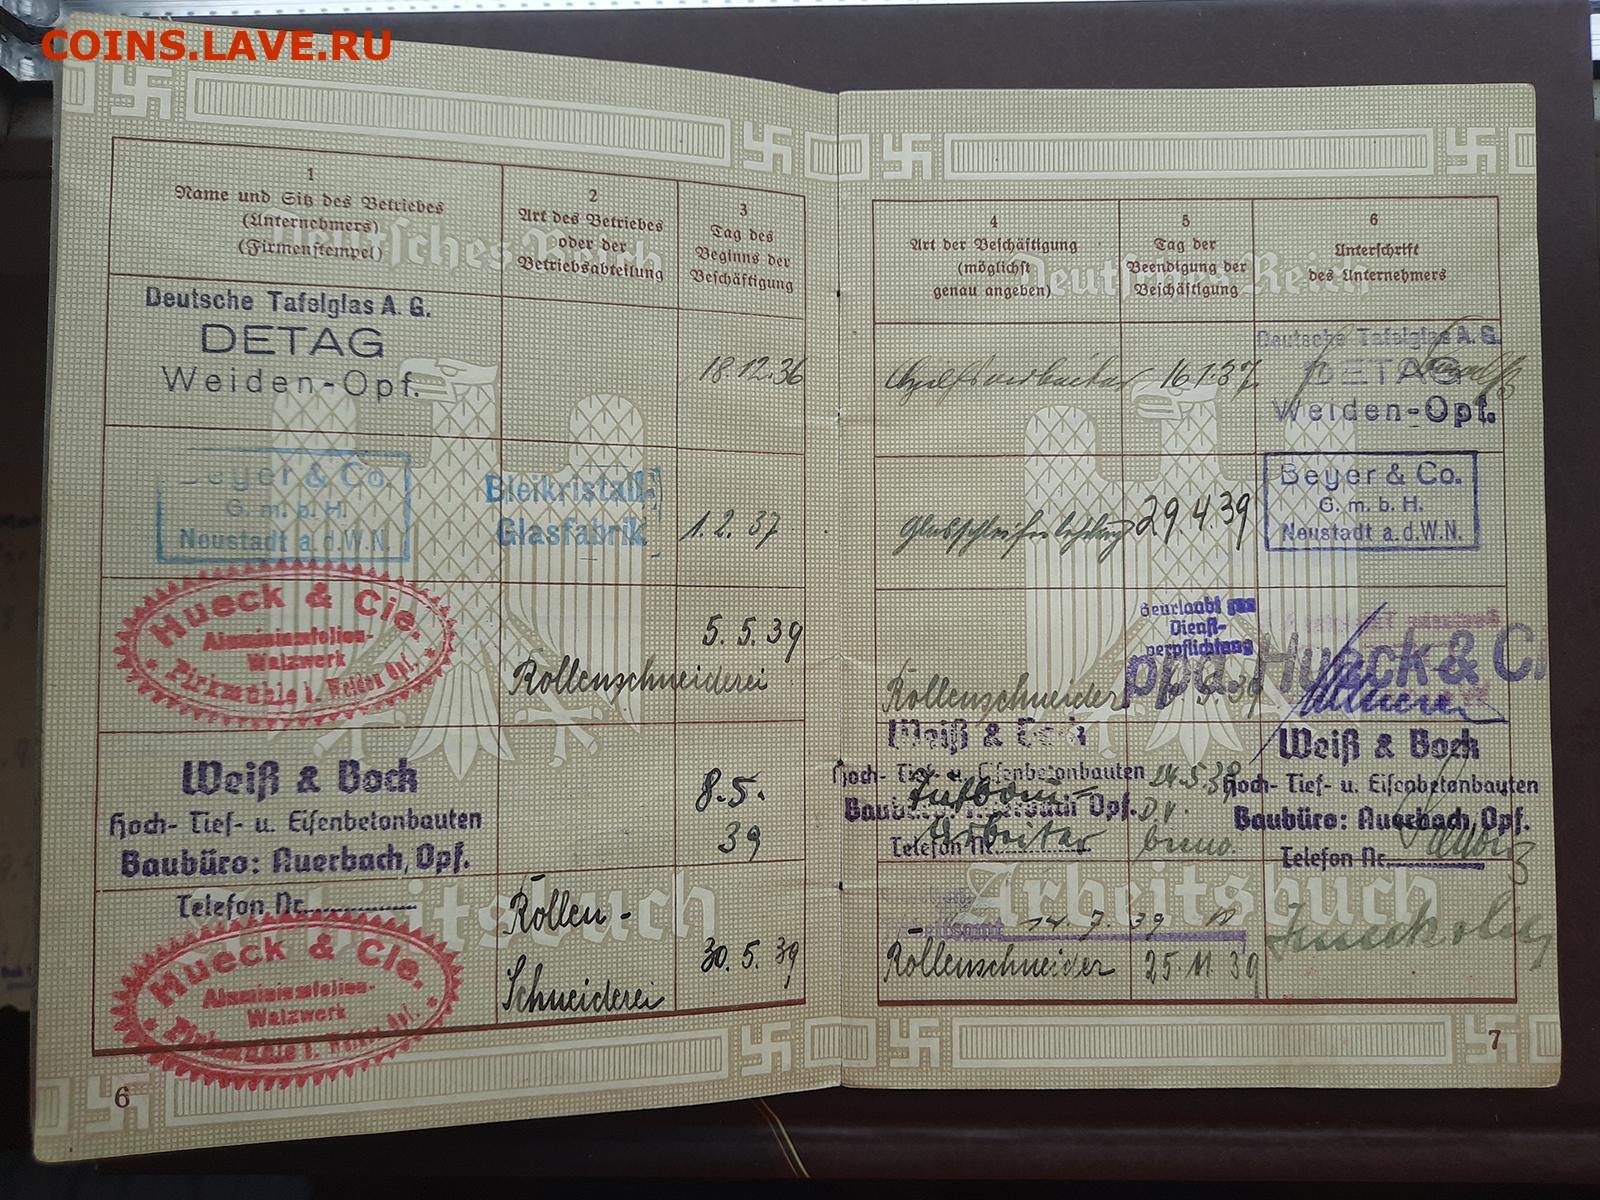 COINS.LAVE.RU
1
Name und Sitz des Betriebes
(Unternehmers)
(Firmenstempel)
2
Art des Betriebes
oder der
Betriebsabteilung
3
Tag des
Beginns der
Beschäftigung
Deutsches Reich
Deutsche Tafelglas A. G.
DETAG
Weiden-Opf.
18.12.36
Beyer & Co.
G. m. b. H.
Neustadt a.d.W.N.
Bleikristall-
Glasfabrik
1.2.37
Hueck & Cie.
Aluminiumfolien-
Walzwerk
Pirkmühle i. Weiden Opf.
Rollenschneiderei
5.5.39
Weiß & Boch
Hoch- Tief- u. Eisenbetonbauten
Baubüro: Auerbach, Opf.
Telefon Nr.
8.5.
39
Hueck & Cie.
Aluminiumfolien-
Walzwerk
Pirkmühle i. Weiden Opf.
Rollen-
Schneiderei
30.5.39
Arbeitsbuch
6
4
Art der Beschäftigung
(möglichst
genau angeben)
5
Tag der
Beendigung der
Beschäftigung
6
Unterschrift
des Unternehmers
Deutsches Reich
Hilfsarbeiter
16.1.37
Deutsche Tafelglas A. G.
DETAG
Weiden-Opf.
Glasschleiferlehrling
29.4.39
Beyer & Co.
G. m. b. H.
Neustadt a.d.W.N.
Beurlaubt zur
Dienst-
verpflichtung
Rollenschneider
ppa. Hueck & C.
Weiß & Boch
Hoch- Tief- u. Eisenbetonbauten
Baubüro: Auerbach Opf.
Telefon Nr.
Tiefbau-
Arbeiter
24.5.39
Weiß & Boch
Hoch- Tief- u. Eisenbetonbauten
Baubüro: Auerbach, Opf.
Telefon Nr.
14.7.39
Rollenschneider
25.11.39
Arbeitsbuch
7